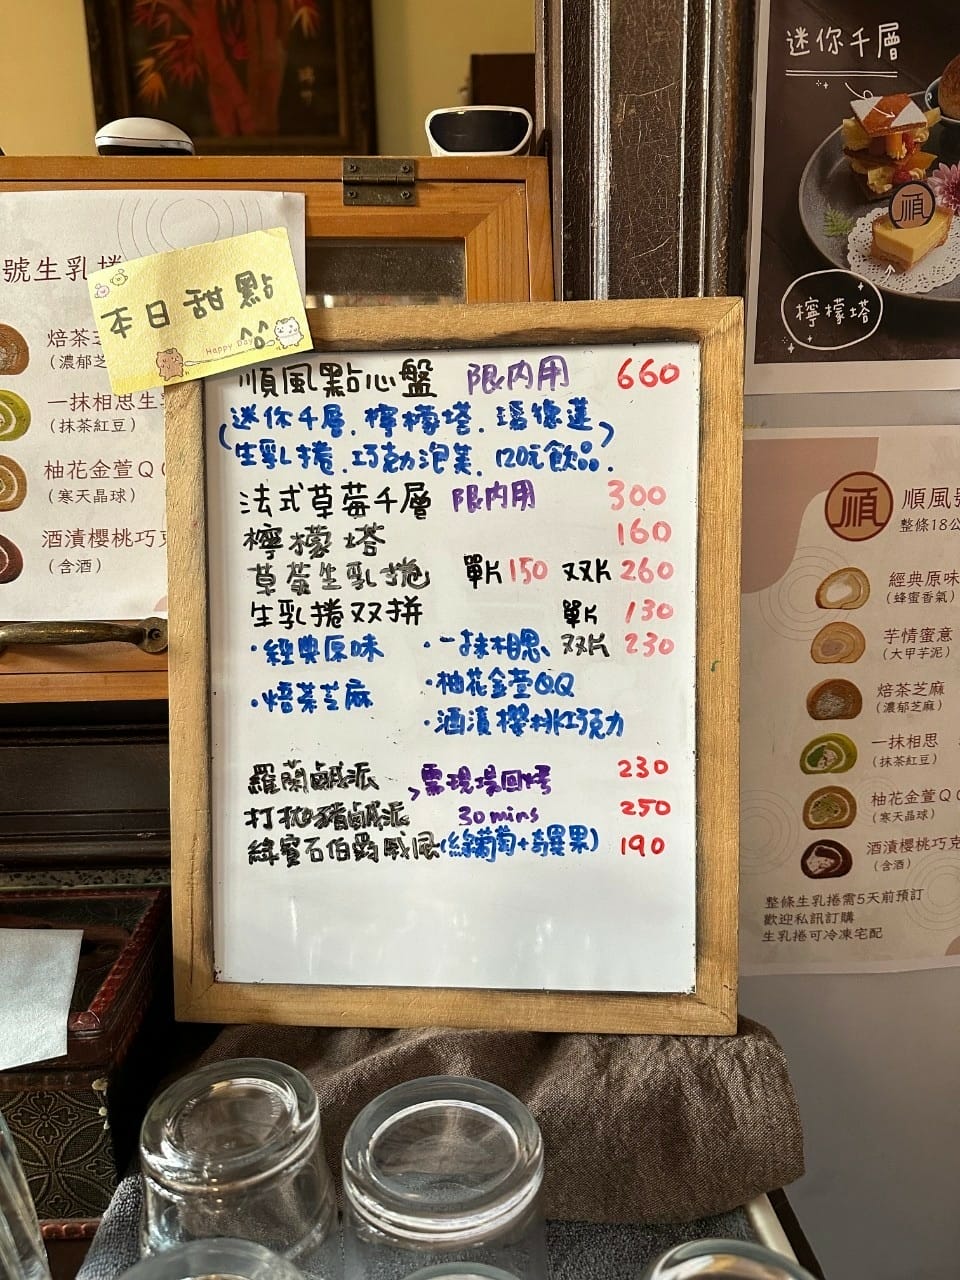 迷你千層
順
檸檬塔
號生乳捲
焙茶芝
(濃郁芝
一抹相思生
(抹茶紅豆)
柚花金萱QQ
(寒天晶球)
酒漬櫻桃巧克
(含酒)
本日甜點
Happy Day
順風點心盤 限內用 660
(迷你千層、檸檬塔、瑪德蓮
生乳捲、巧克力泡芙、120元飲品)
法式草莓千層 限內用 300
檸檬塔 160
草莓生乳捲 單片150 双片260
生乳捲双拼 單片 130
·經典原味 ·一抹相思 双片 230
·焙茶芝麻 ·柚花金萱QQ
·酒漬櫻桃巧克力
羅蘭鹹派 需現場回烤 230
打拋豬鹹派 30mins 250
綠寶石伯爵戚風(綠葡萄+奇異果) 190
順 順風號
整條18公
經典原味
(蜂蜜香氣)
芋情蜜意
(大甲芋泥)
焙茶芝麻
(濃郁芝麻)
一抹相思
(抹茶紅豆)
柚花金萱QQ
(寒天晶球)
酒漬櫻桃巧克
(含酒)
整條生乳捲需5天前預訂
歡迎私訊訂購
生乳捲可冷凍宅配